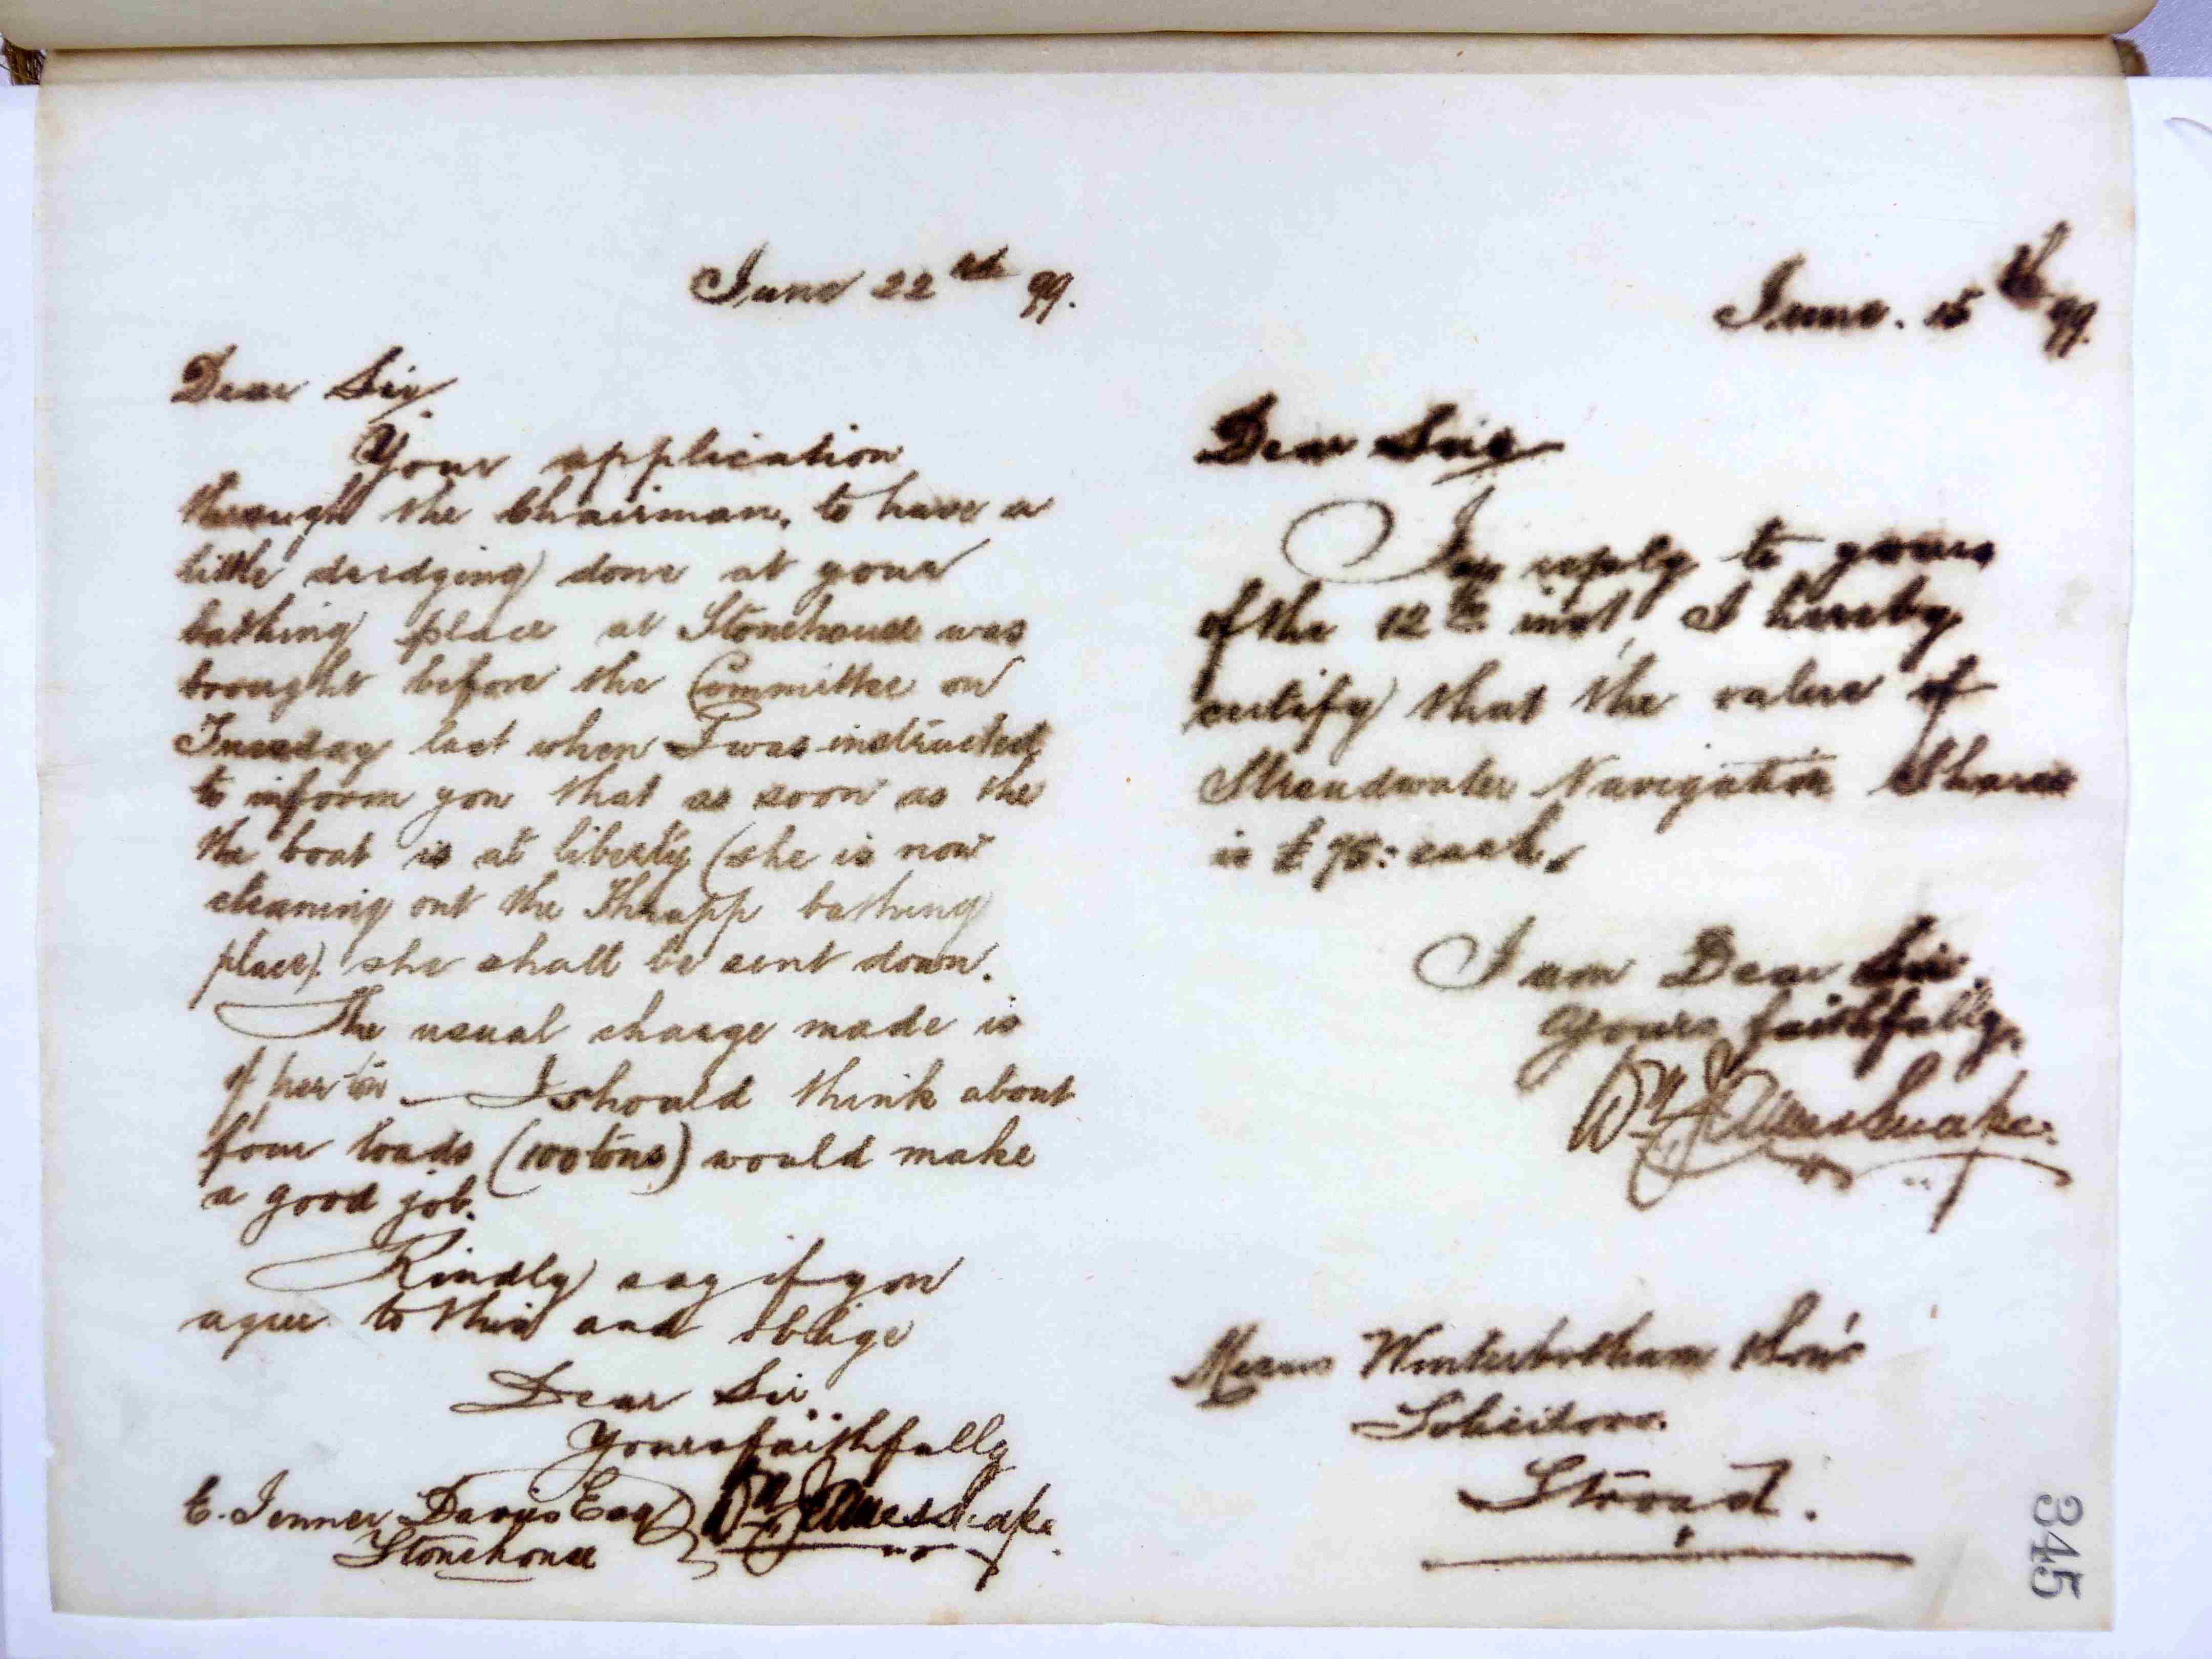 June 22nd 99.
Dear Sir
Your application
through the Chairman, to have a
little dredging done at your
bathing place at Stonehouse was
brought before the Committee on
Tuesday last when I was instructed
to inform you that as soon as the
the boat is at liberty (she is now
cleaning out the Thrupp bathing
place) she shall be sent down.
The usual charge made is
per ton — I should think about
four loads (100 tons) would make
a good job.
Kindly say if you
agree to this and oblige
Dear Sir
Yours faithfully
E. Jenner Davis Esq Wm J Snape
Stonehouse
June. 15th 99.
Dear Sirs
In reply to yours
of the 12th inst, I hereby
certify that the value of
Stroudwater Navigation Shares
is £ each.
I am Dear Sir,
Yours faithfully,
Wm J Snape
Messrs Winterbotham & Sons
Solicitors.
Stroud.
345